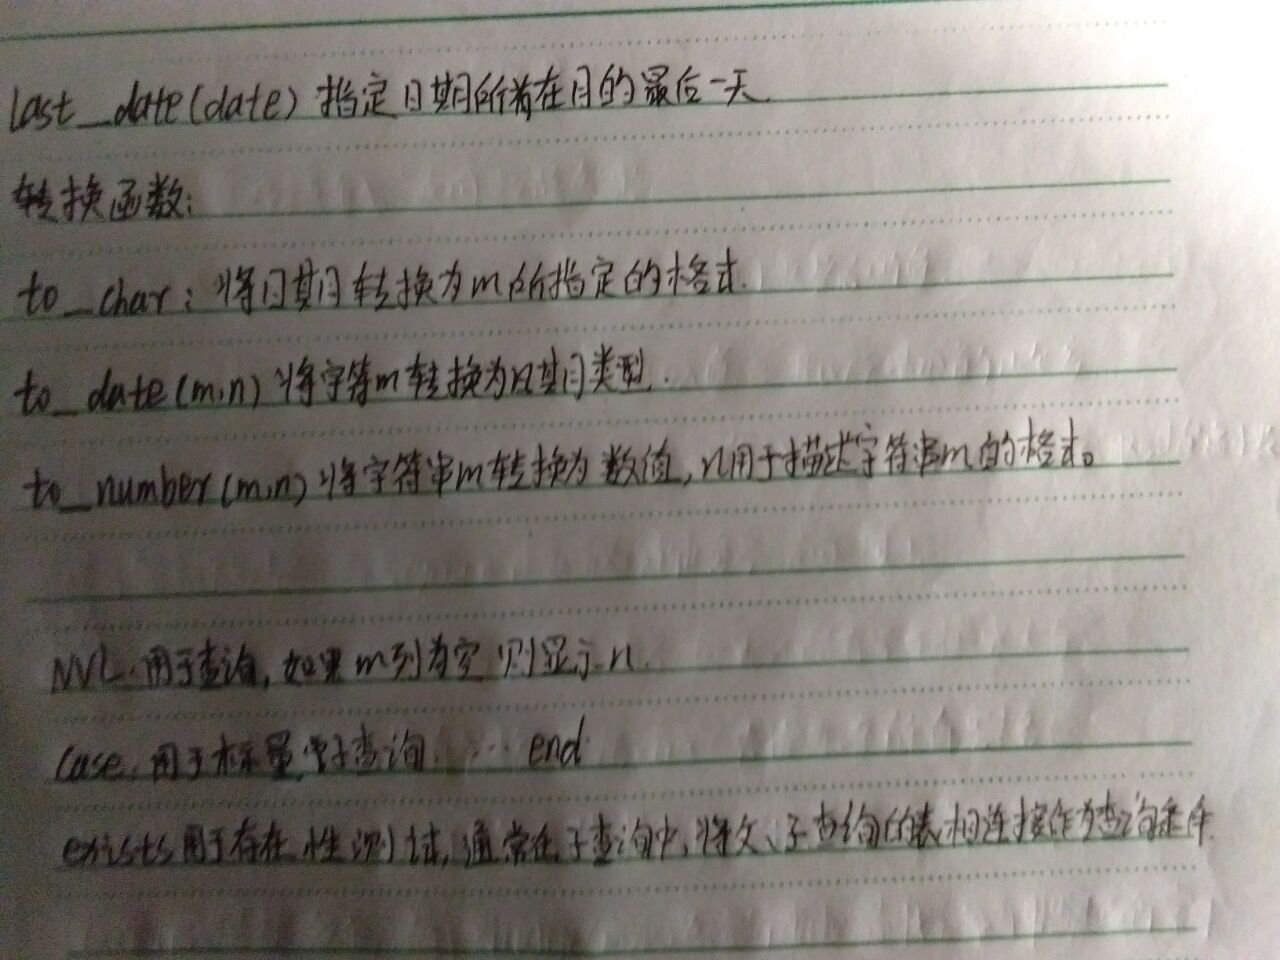 last_date(date) 指定日期所在月的最后一天
转换函数:
to_char: 将日期转换为m所指定的格式.
to_date(m,n) 将字符m转换为日期类型.
to_number(m,n) 将字符串m转换为数值,n用于描述字符串m的格式。
NVL 用于查询,如果m列为空则显示n.
case. 用于标量 子查询. ... end
exists用于存在性测试,通常在子查询中,将父、子查询的表相连接作为查询条件.